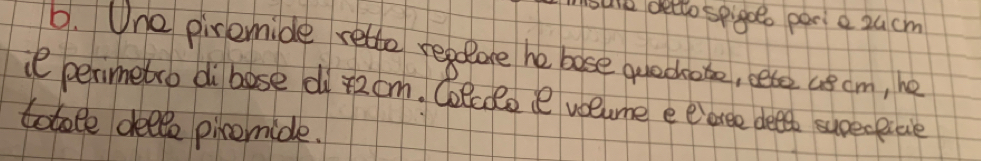 misura dello spigolo pari a 24cm
6. Una piramide retta regolare ha base quadrata, alta 48 cm, ha
il perimetro di base di 72cm. Calcola il volume e l'area della superficie
totale della piramide.